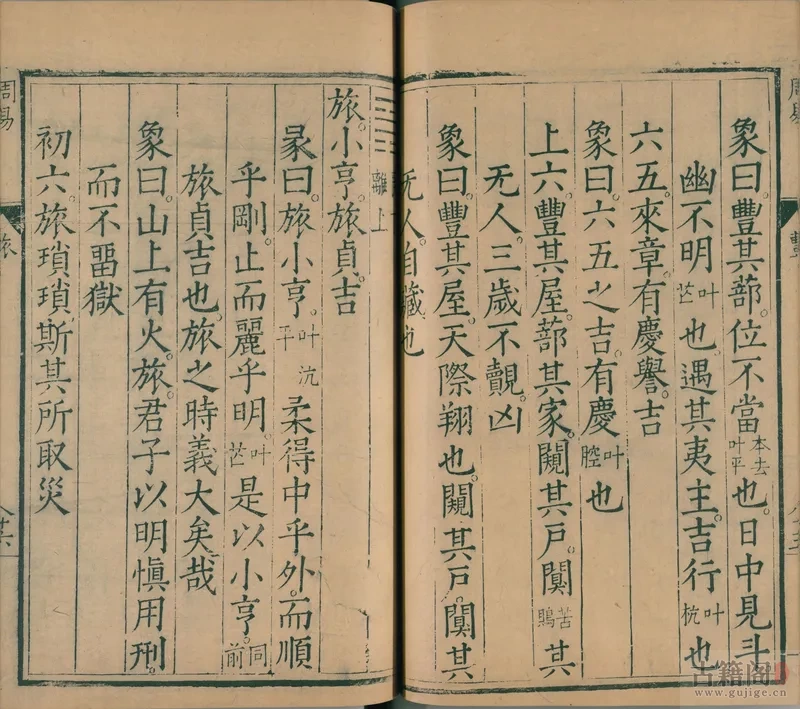 象曰。豐其蔀。位不當本去叶平也。日中見斗。
幽不明叶芒也。遇其夷主。吉行叶杭也
六五。來章。有慶譽。吉
象曰。六五之吉。有慶叶腔也
上六。豐其屋。蔀其家。闚其戶。闃苦鶪其
无人。三歲不覿。凶
象曰。豐其屋。天際翔也。闚其戶。闃其
无人。自藏也
離上
旅。小亨。旅貞。吉
彖曰。旅小亨。叶沆平柔得中乎外。而順
乎剛。止而麗乎明。叶芒是以小亨。同前
旅貞吉也。旅之時義大矣哉
象曰。山上有火。旅。君子以明慎用刑。
而不畱獄
初六。旅瑣瑣。斯其所取災
周易
旅
周易
豐
古籍阁
www.gujige.cn